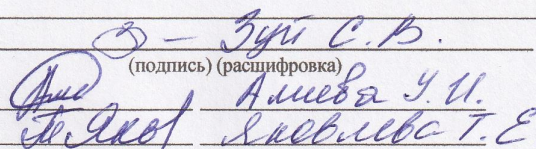 Зуй С. В.
(подпись) (расшифровка)
Алиева У. И.
Яковлева Т. Е